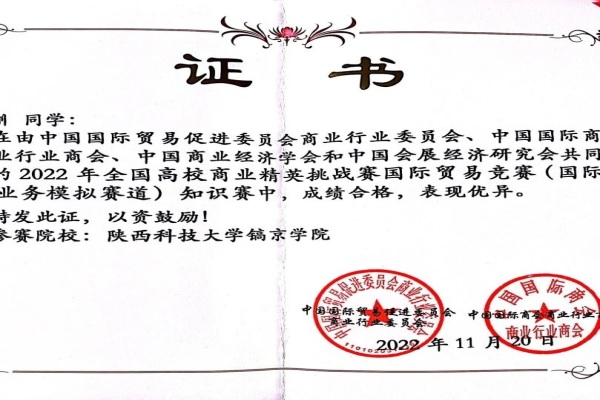 证 书
同学：
在由中国国际贸易促进委员会商业行业委员会、中国国际商
业行业商会、中国商业经济学会和中国会展经济研究会共同
的2022年全国高校商业精英挑战赛国际贸易竞赛（国际
业务模拟赛道）知识赛中，成绩合格，表现优异。
特发此证，以资鼓励！
参赛院校：陕西科技大学镐京学院
中国国际贸易促进委员会 中国国际商会商业行业
商业行业委员会
2022 年 11 月 20 日
中国国际贸易促进委员会商业行业委员会
中国国际商
商业行业商会